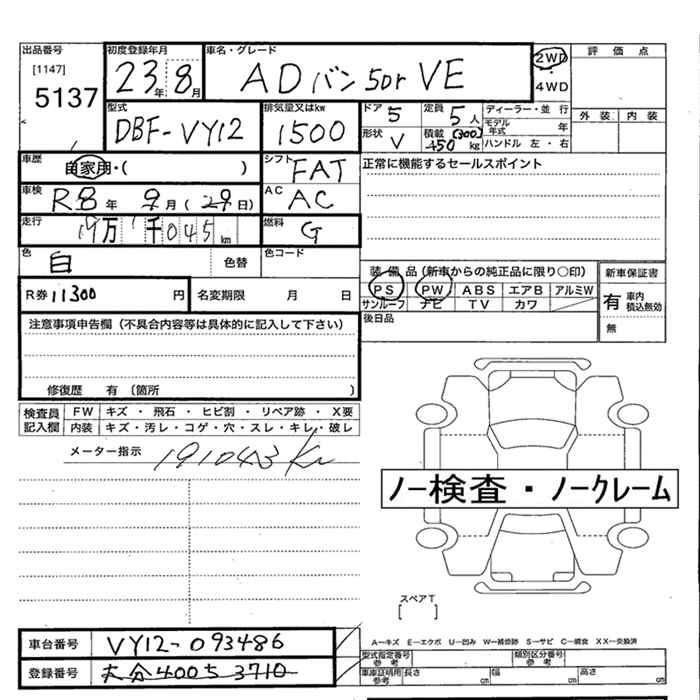 出品番号 初度登録年月 車名・グレード 評価点
[1147]
5137 23年8月 ADバン 5dr VE 2WD・4WD
型式 排気量又はkw ドア 5 定員 5人 ディーラー・並行 外装 内装
DBF-VY12 1500 形状 V 積載 (300) 450kg モデル年式 年
ハンドル 左・右
車歴 自家用・( ) シフト FAT 正常に機能するセールスポイント
車検 R8年9月(29日) AC AC
走行 19万1千045km 燃料 G
色 白 色替 色コード
装備品(新車からの純正品に限り○印) 新車保証書
R券 11300円 名変期限 月 日 PS PW ABS エアB アルミW 有 車内積込無効
サンルーフ ナビ TV カワ
注意事項申告欄(不具合内容等は具体的に記入して下さい) 後日品 無
修復歴 有〔箇所 〕
検査員記入欄 FW キズ・飛石・ヒビ割・リペア跡・X要
内装 キズ・汚レ・コゲ・穴・スレ・キレ・破レ
メーター指示 191043Km
ノー検査・ノークレーム
スペアT
[ ]
車台番号 VY12-093486 A-キズ E-エクボ U-凹み W-補修跡 S-サビ C-腐食 XX-交換済
型式指定番号参考 類別区分番号参考
登録番号 大分400そ3710 車庫証明用参考 長さ cm 幅 cm 高さ cm